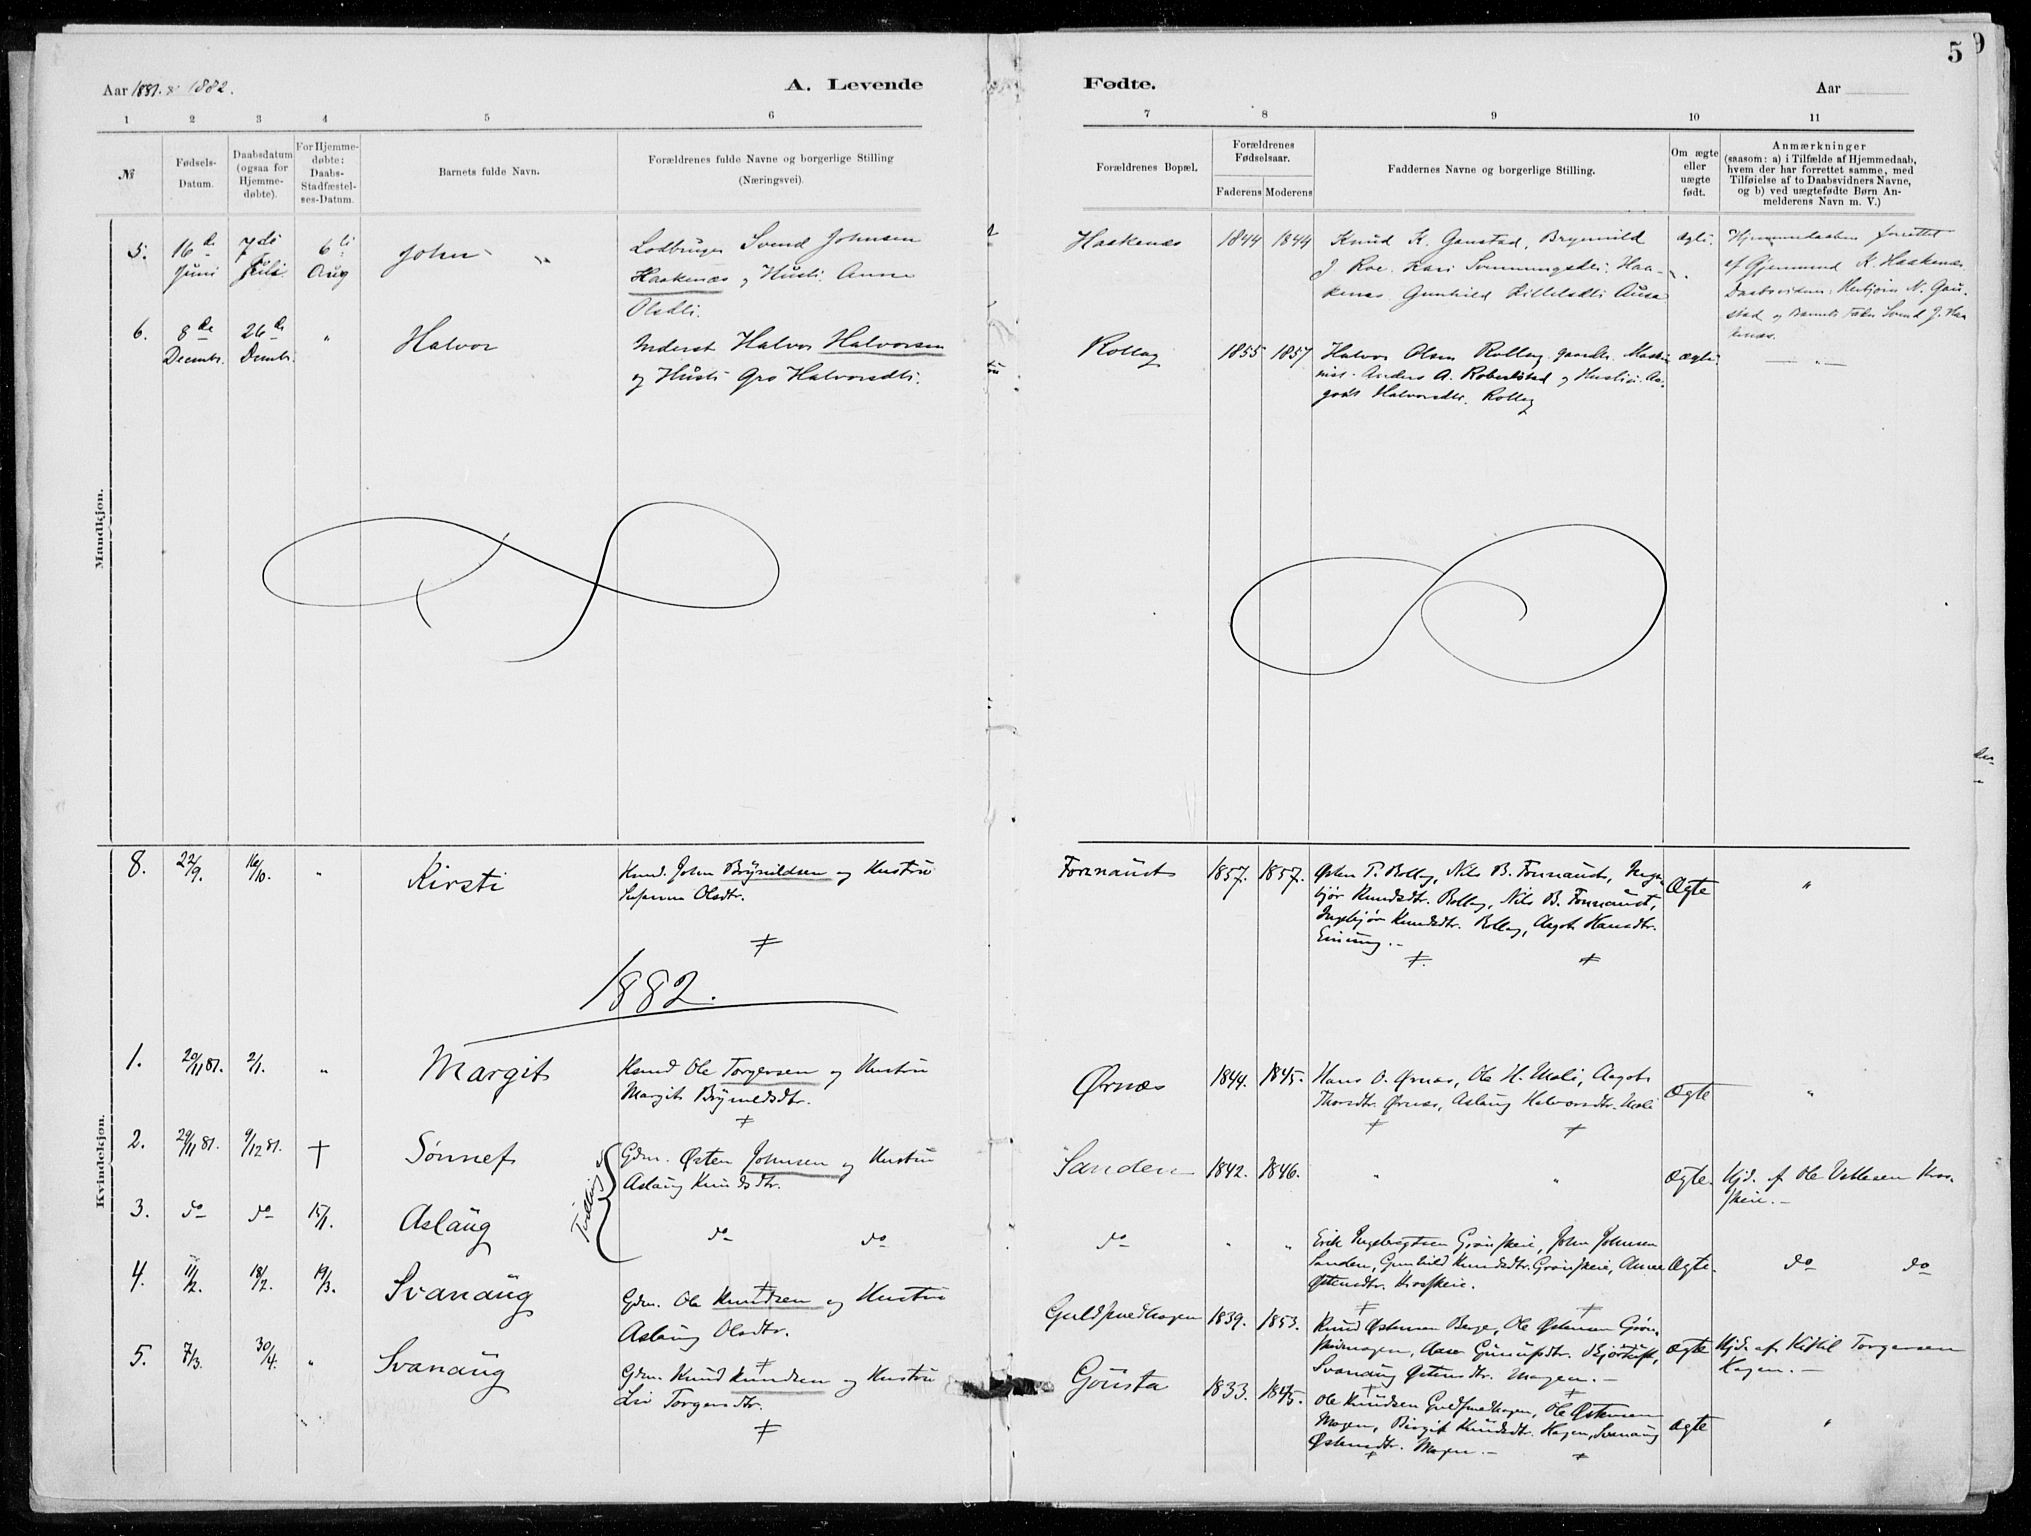 5
Aar 1881 & 1882.
A. Levende
Fødte.
Aar
1 2 3 4 5 6 7 8 9 10 11
№
Fødsels-Datum.
Daabsdatum (ogsaa for Hjemme-døbte).
For Hjemme-døbte: Daabs-Stadfæstel-ses-Datum.
Barnets fulde Navn.
Forældrenes fulde Navne og borgerlige Stilling
(Næringsvei).
Forældrenes Bopæl.
Forældrenes Fødselsaar.
Faderens Moderens
Faddernes Navne og borgerlige Stilling.
Om ægte eller uægte født.
Anmærkninger
(saasom: a) i Tilfælde af Hjemmedaab,
hvem der har forrettet samme, med
Tilføielse af to Daabsvidners Navne,
og b) ved uægtefødte Børn An-
melderens Navn m. V.)
Mandkjøn.
5. 16de Juni 7de Juli 6te Aug John
Svend Johnsen
Haakenæs og Hustr. Anne
Olsdtr.
Haakenæs 1844 1844
Knud K. Gaustad, Brynnild
J. Roe. Kari Haa-
kenæs. Gunhild
Ægte.
Hjemmedaaben forrettet
af K. Haakenæs
Daabsvidner: N. Gau-
stad og Barnets Fader Svend J. Haa-
kenæs.
6. 8de Decembr. 26de Dcmbr. " Halvor
Inderst Halvor Halvorsen
og Hustr. Gro Halvorsdtr.
Rollag 1855 1857
Halvor Olsen Rollag
Anders A. og Hustru Aa-
got Halvorsdtr. Rollag
ægte. "
Kvindekjøn.
8. 22/9. 16/10. " Kirsti
Husmd. John Brynildsen og Hustru
Susanna Olsdtr.
Fonnaust 1857. 1857.
Østen T. Rollag, Nils B. Fonnaust, Inge-
bjør Knudsdtr. Rollag, Nils B. Fonnaust,
Ingebjør Knudsdtr. Rollag, Aagot Hansdtr.
Ægte "
1882.
1. 20/11 81. 2/1. " Margit
Husmd. Ole Torgersen og Hustru
Margit Brynildsdtr.
Ørnæs 1844. 1845.
Hans O. Ørnæs, Ole H. Moli, Aagot
Thorsdtr. Ørnæs, Aslaug Halvorsdtr. Moli
Ægte "
2. 29/11 81. 9/12 81. † Sønnef
Tvilling
Gdm. Østen Johnsen og Hustru
Aslaug Knudsdtr.
Sanden 1842. 1846. " "
Ægte. Hjd. af Ole Vetlesen
3. do do 15/1. Aslaug
do do
do " "
Erik Ingebrigtsen Grønskeie, John Johnsen
Sanden, Gunhild Knudsdtr. Grønskeie, Anne
Østensdtr.
Ægte. do do
4. 11/2. 18/2. 19/3. Svanaug
Gdm. Ole Knudsen og Hustru
Aslaug Olsdtr.
Guldsmedhagen 1839. 1853.
Knud Østensen Berge, Ole Østensen
Svanaug Østensdtr. Mogen.
Ægte Hjd. af Kittil Torgersen
Hagen.
5. 7/3. 30/4. " Svanaug
Gdm. Knud Knudsen og Hustru
Liv Torgersdtr.
Gousta 1833. 1845.
Ole Knudsen Guldsmedhagen, Ole Østensen
Mogen, Birgit Knudsdtr. Hagen, Svanaug
Østensdtr. Mogen.
Ægte "